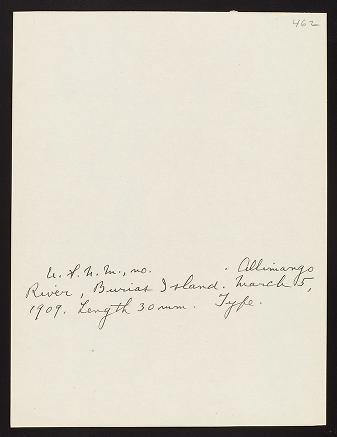 462
U.S.N.M., no. . Allimango
River, Burias Island. March 5,
1909. Length 30 mm. Type.